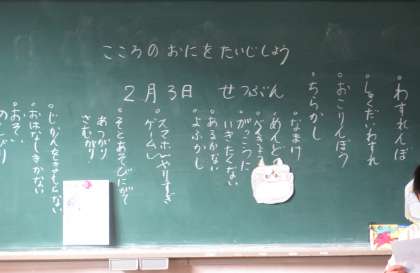 こころの おにを たいじしよう
2月3日 せつぶん
・わすれんぼ
・しゅくだいわすれ
・おこりんぼう
・ちらかし
・なまけ
・めんどく
・がっこうに
いきたくない
・あるかない
・よふかし
・スマホ(やりすぎ
ゲーム
・そとあそびにがて
あつがり
さむがり
・じかんをまもらない
・おはなしきかない
・おそい